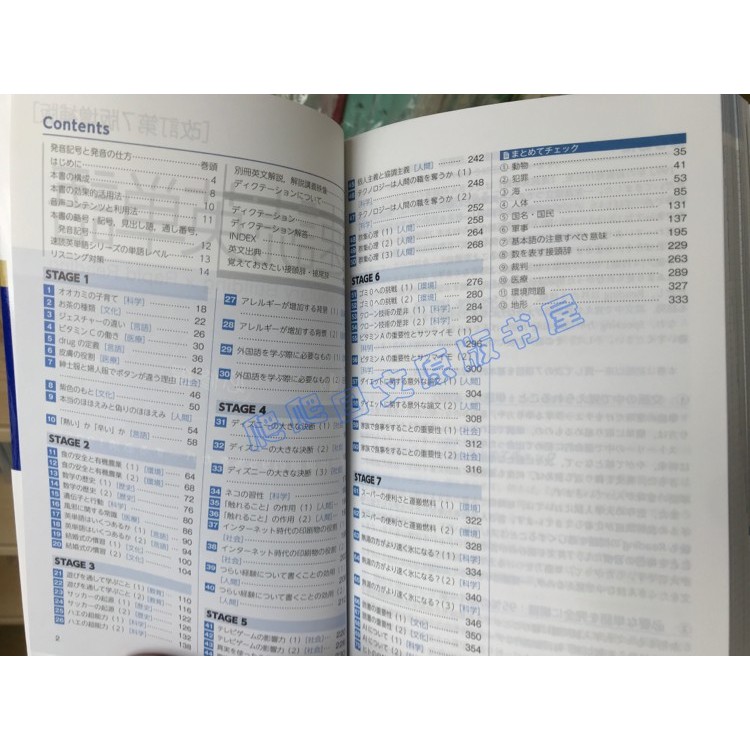 Contents
発音記号と発音の仕方 巻頭
はじめに 4
本書の構成 8
本書の効果的活用法 10
音声コンテンツと利用法 11
本書の略号・記号、見出し語、通し番号、
発音記号 12
速読英単語シリーズの単語レベル 13
リスニング対策 14
STAGE 1
1 オオカミの子育て [科学] 18
2 お茶の種類 [文化] 22
3 ジェスチャーの違い [言語] 26
4 ビタミンCの働き [医療] 30
5 drugの定義 [言語] 36
6 皮膚の役割 [医療] 42
7 紳士服と婦人服でボタンが違う理由 [社会]
46
8 紫色のもと [文化] 50
9 本当のほほえみと偽りのほほえみ [人間]
54
10 「熱い」か「辛い」か [言語] 58
STAGE 2
11 食の安全と有機農業 (1) [環境] 64
12 食の安全と有機農業 (2) [環境] 68
13 数学の歴史 (1) [歴史] 72
14 数学の歴史 (2) [歴史] 76
15 遺伝子と行動 [科学] 80
16 風邪に関する常識 [医療] 86
17 英単語はいくつあるか (1) [言語] 90
18 英単語はいくつあるか (2) [言語] 94
19 結婚式の慣習 (1) [文化] 100
20 結婚式の慣習 (2) [文化] 104
STAGE 3
21 遊びを通して学ぶこと (1) [教育] 110
22 遊びを通して学ぶこと (2) [教育] 116
23 サッカーの起源 (1) [歴史] 122
24 サッカーの起源 (2) [歴史] 126
25 ハエの超能力 (1) [科学] 132
26 ハエの超能力 (2) [科学] 138
2
別冊英文解説、解説講義映像
ディクテーションについて
ディクテーション
ディクテーション解答
INDEX
英文出典
覚えておきたい接頭辞・接尾辞
27 アレルギーが増加する背景 (1) [医療]
28 アレルギーが増加する背景 (2) [医療]
29 外国語を学ぶ際に必要なもの (1) [言語]
30 外国語を学ぶ際に必要なもの (2) [言語]
STAGE 4
31 ディズニーの大きな決断 (1) [社会]
32 ディズニーの大きな決断 (2) [社会]
33 ディズニーの大きな決断 (3) [社会]
34 ネコの習性 [科学]
35 「触れること」の作用 (1) [人間]
36 「触れること」の作用 (2) [人間]
37 インターネット時代の印刷物の役割 (1)
[社会]
38 インターネット時代の印刷物の役割 (2)
[社会]
39 つらい経験について書くことの効用 (1)
[人間]
40 つらい経験について書くことの効用 (2)
[人間]
STAGE 5
41 テレビゲームの影響力 (1) [社会]
42 テレビゲームの影響力 (2) [社会]
個人主義と協調主義 [人間] 242
テクノロジーは人間の職を奪うか (1)
[科学] 246
47 テクノロジーは人間の職を奪うか (2)
[科学] 250
群集心理 (1) [人間] 258
群集心理 (2) [人間] 264
群集心理 (3) [人間] 268
STAGE 6
ゴミ0への挑戦 (1) [環境] 276
ゴミ0への挑戦 (2) [環境] 280
クローン技術の是非 (1) [科学] 284
クローン技術の是非 (2) [科学] 290
ビタミンAの重要性とサツマイモ (1)
[科学] 296
ビタミンAの重要性とサツマイモ (2)
[科学] 300
ダイエットに関する意外な論文 (1) [人間]
304
ダイエットに関する意外な論文 (2) [人間]
308
家族で食事をすることの重要性 (1) [社会]
312
家族で食事をすることの重要性 (2) [社会]
316
STAGE 7
スーパーの便利さと運搬燃料 (1) [環境]
322
スーパーの便利さと運搬燃料 (2) [環境]
328
熱湯の方がより速く氷になる? (1) [科学]
334
熱湯の方がより速く氷になる? (2) [科学]
340
読書の習慣 (1) [文化] 346
読書の習慣 (2) [文化] 350
について (1) [科学] 354
まとめてチェック 35
① 動物 41
② 犯罪 53
③ 海 85
④ 人体 131
⑤ 国名・国民 137
⑥ 軍事 145
⑦ 基本語の注意すべき意味 195
⑧ 数を表す接頭辞 239
⑨ 裁判 287
⑩ 医療 327
⑪ 環境問題 333
⑫ 地形
爬爬日文原版书屋